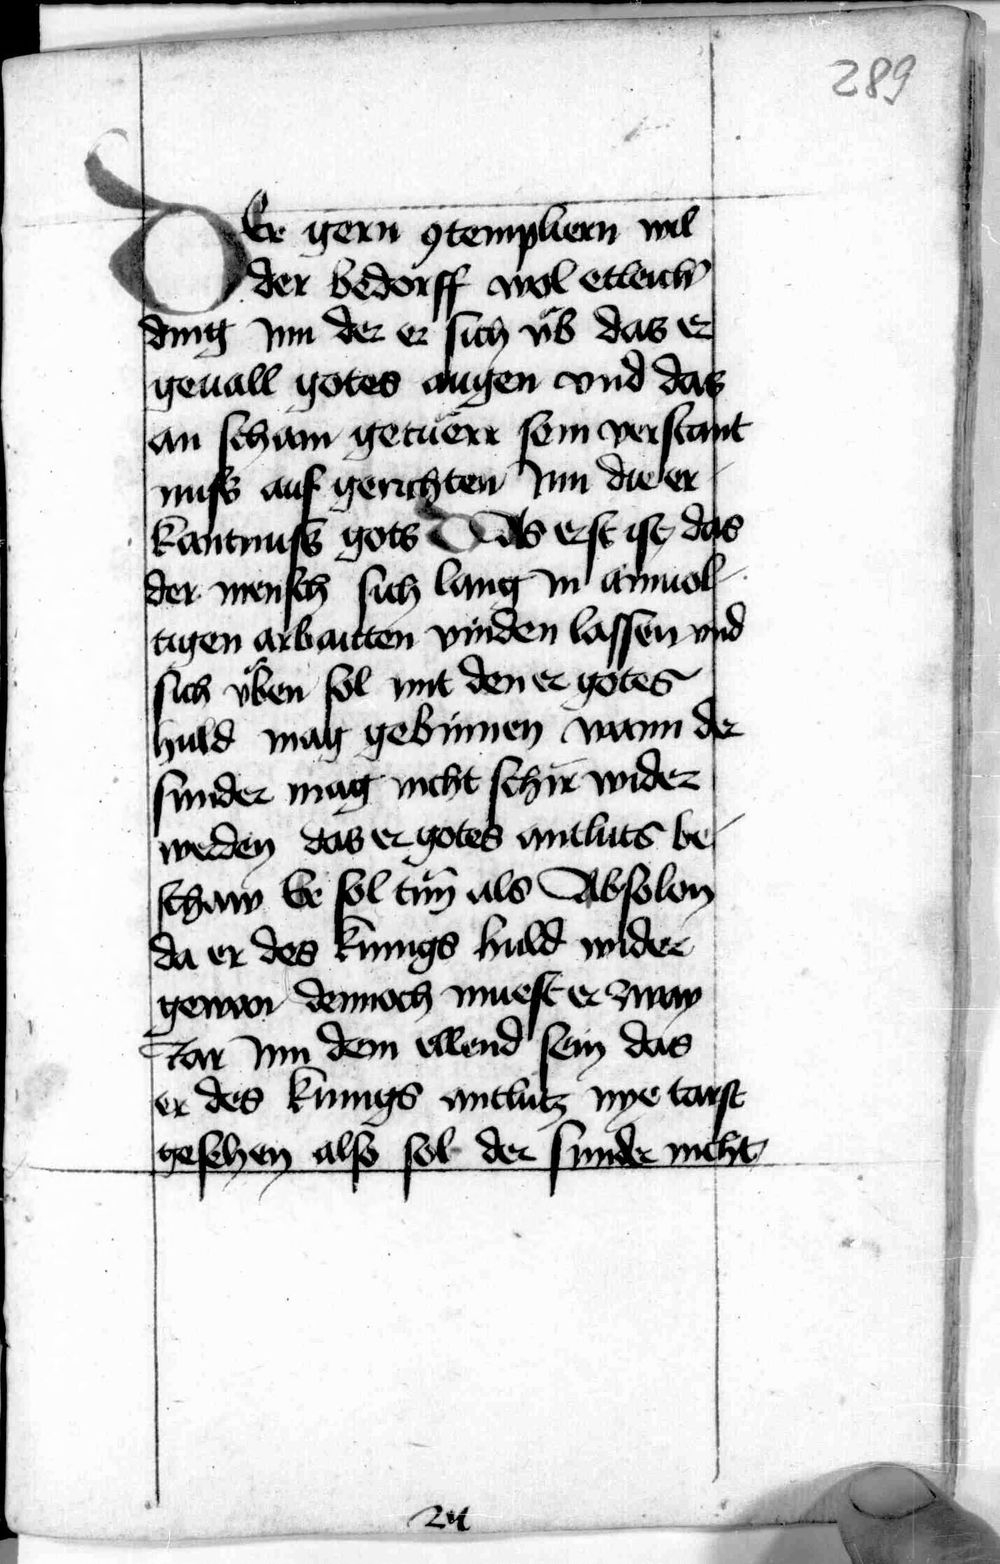 289
DEr gern ꝯtempliern wil
der bedorff wol etleich
ding Inn der er sich vͤb das er
geuall gotes augen vnd das
an scham getuͤrr sein verstant
nuss auf gerichten Inn die er
kantnuss gots DAs erst ist das
der mensch sich lang in ainuol
tigen arbaitten vinden lassen vnd
sich vͤben sol mit den er gotes
huld mag gebinnen wann der
sunder mag nicht schir wider
werden das er gotes antluts be
schaw Er sol tun als Absolon
da er des kunigs huld wider
gewan dennoch muest er zway
Iar Inn dem ellend sein das
er des kunigs antlutz nye tarst
gesehen also sol der sunder nicht